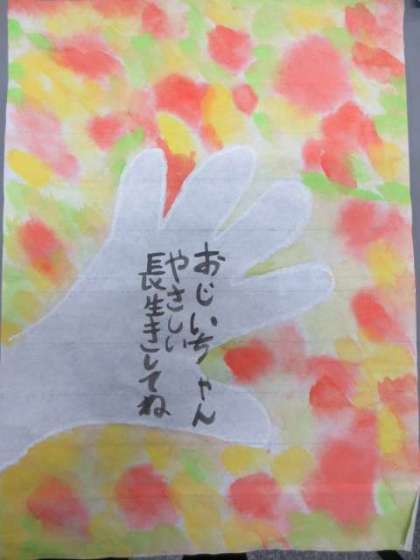 おじいちゃん
やさしい
長生きしてね